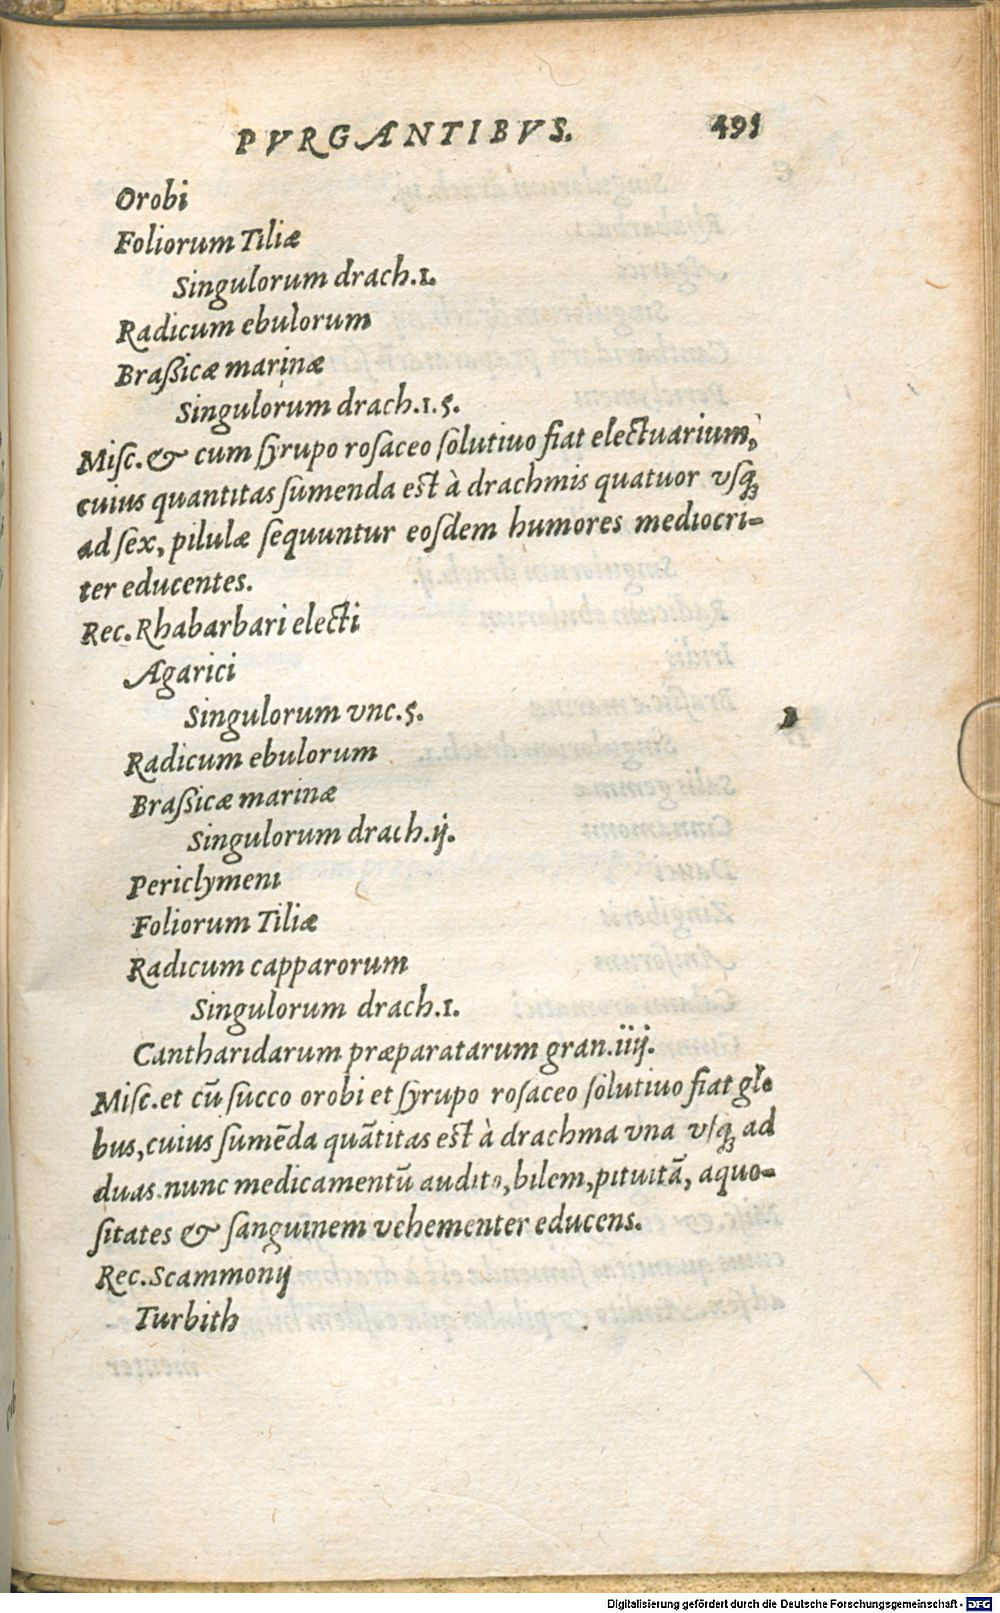 PVRGANTIBVS. 491
Orobi
Foliorum Tiliæ
Singulorum drach.1.
Radicum ebulorum
Braßicæ marinæ
Singulorum drach.1.5.
Misc. & cum syrupo rosaceo solutiuo fiat electuarium,
cuius quantitas sumenda est à drachmis quatuor vsq;
ad sex, pilulæ sequuntur eosdem humores mediocri-
ter educentes.
Rec. Rhabarbari electi
Agarici
Singulorum vnc.5.
Radicum ebulorum
Braßicæ marinæ
Singulorum drach.ij.
Periclymeni
Foliorum Tiliæ
Radicum capparorum
Singulorum drach.1.
Cantharidarum præparatarum gran.iiij.
Misc.et cū succo orobi et syrupo rosaceo solutiuo fiat glo
bus, cuius sumēda quātitas est à drachma vna vsq; ad
duas. nunc medicamentū audito, bilem, pituitā, aquo-
sitates & sanguinem vehementer educens.
Rec. Scammonij
Turbith
Digitalisierung gefördert durch die Deutsche Forschungsgemeinschaft - DFG